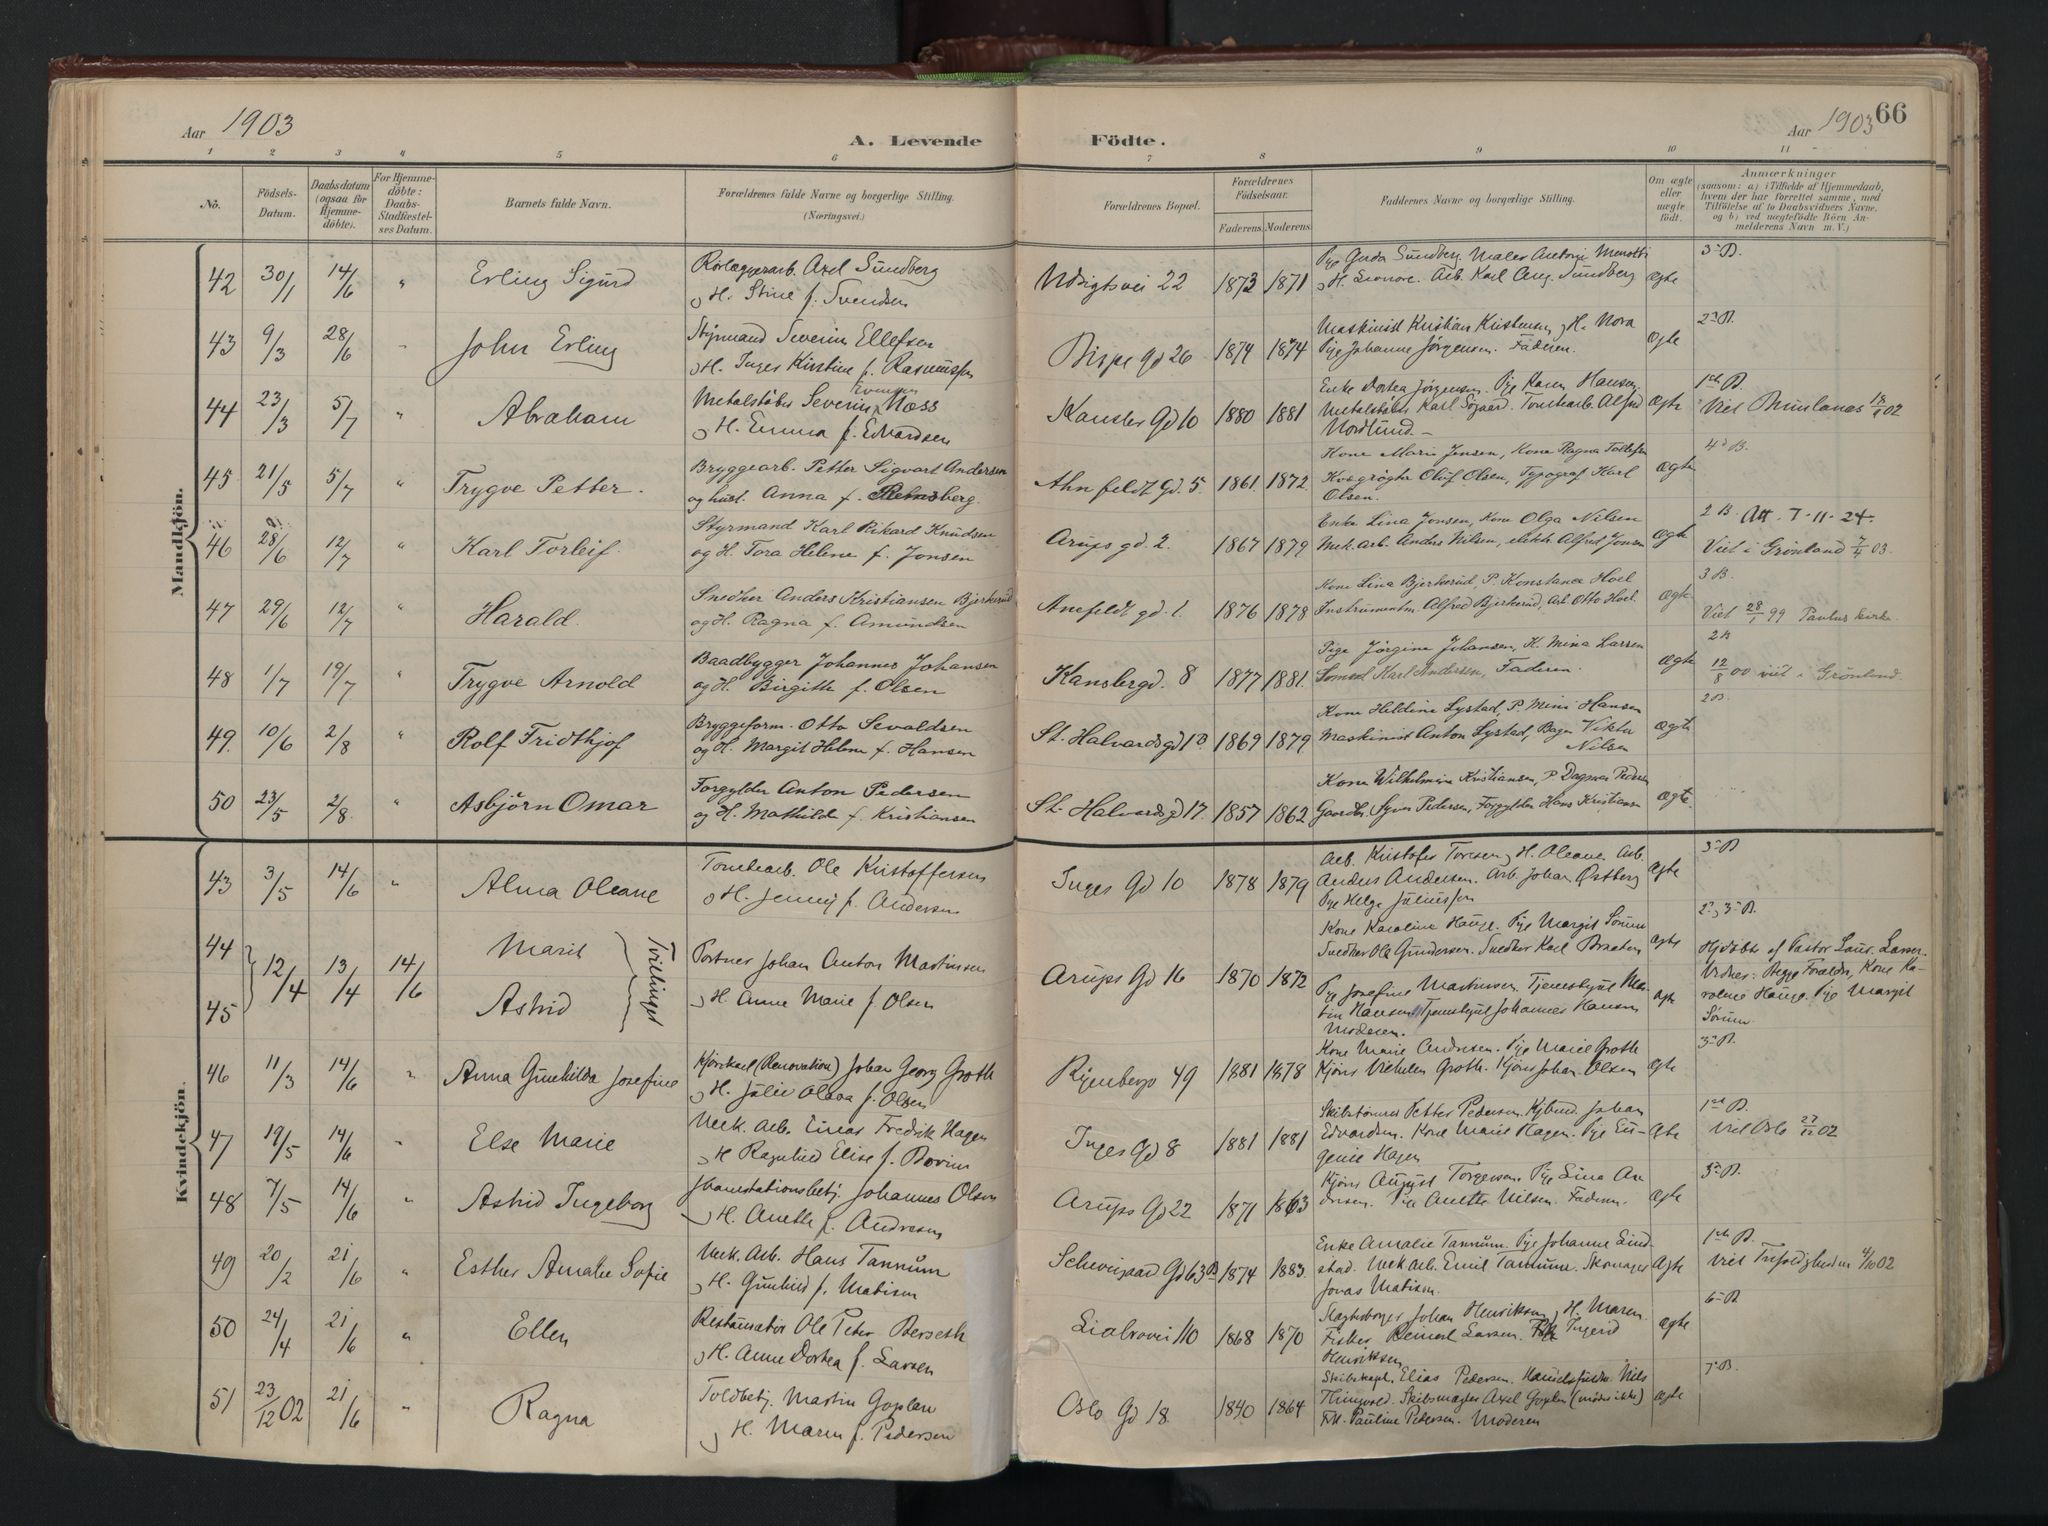 Aar 1903
A. Levende
Födte.
Aar 1903
66
1 2 3 4 5 6 7 8 9 10 11
No.
Födsels-
Datum.
Daabsdatum
(ogsaa for
Hjemme-
döbte).
For Hjemme-
döbte:
Daabs-
Stadfæstel-
ses Datum.
Barnets fulde Navn.
Forældrenes fulde Navne og borgerlige Stilling.
(Næringsvei.)
Forældrenes Bopæl.
Forældrenes
Födselsaar.
Faderens. Moderens.
Faddernes Navne og borgerlige Stilling.
Om ægte
eller
uægte
födt.
Anmærkninger
(saasom: a) i Tilfælde af Hjemmedaab,
hvem der har forrettet samme, med
Tilföielse af to Daabsvidners Navne,
og b) ved uægtefödte Börn An-
melderens Navn m. V.)
Mandkjön.
42 30/1 14/6 " Erling Sigurd
Rörlæggerarb. Axel Sundberg
og H. Stine f. Svendsen
Udsigtsvei 22 1873 1871
Pige Gerda Sundberg. Maler Antoni Menotti
og H. Leonore. Arb. Karl Aug. Sundberg
ægte
3die B.
43 9/3 28/6 " John Erling
Styrmand Severin Ellefsen
og H. Inges Kirstine f. Rasmussen
Bispe Gd 26 1874 1874
Maskinist Kristian Kristensen og H. Nora
Pige Johanne Jørgensen. Faderen.
ægte
2det B.
44 23/3 5/7 " Abraham
Metalstøber Severin Evensen Næss
og H. Emma f. Edvardsen
Kansler Gd 10 1880 1881
Enke Dortea Jørgensen. Pige Karen Hansen
Metalstøber Karl Sogaard. Tomtearb. Alfred
Nordlund.
ægte
1ste B.
Viet Brunlanæs 18/1 02
45 21/5 5/7 " Trygve Petter.
Bryggearb. Petter Sigvart Andersen
og hust. Anna f. Rehnsberg.
Ahnfeldt Gd. 5. 1861. 1872.
Kone Marie Jensen, Kone Ragna Tollefsen
Olsen, Typograf Karl
Olsen.
ægte
4de B.
46 28/6 12/7 " Karl Torleif.
Styrmand Karl Rikard Knudsen
og H. Tora Helene f. Jonsen
Arups gd. 2. 1867 1879
Enke Lina Jonsen, Kone Olga Nilsen
Mek. arb. Anders Nilsen, elektr. Alfred Jonsen
ægte
2 B. Att. 7-11-24.
Viet i Grönland 7/4 03.
47 29/6 12/7 " Harald.
Snedker Anders Kristiansen Bjerkerud
og H. Ragna f. Amundsen
Anefeldt gd. 1. 1876 1878
Kone Lina Bjerkerud, P. Konstance Hoel
Instrumentm. Alfred Bjerkerud, Arb. Otto Hoel.
ægte
3 B.
Viet 28/1 99 Paulus kirke.
48 1/7 19/7 " Trygve Arnold
Baadbygger Johannes Johansen
og H. Birgitte f. Olsen
Kanslergd. 8 1877 1881.
Pige Jørgine Johansen, K. Mina Larsen
Sömand Karl Andersen, Faderen.
ægte
2 B
12/8 00 viet i Grönland
49. 10/6 2/8 " Rolf Fridthjof
Bryggeform. Otto Sevaldsen
og H. Margit Helene f. Hansen
St. Halvardsgd 10 1869 1879.
Kone Heldine Lystad, P. Mimi Hansen
Maskinist Anton Lystad, Bager Viktor
Nilsen
ægte
2 B
50 23/5 2/8. " Asbjörn Omar
Forgylder Anton Pedersen
og H. Mathilde f. Kristiansen
St. Halvardsgd 17. 1857 1862
Kone Wilhelmine Kristiansen, P. Dagmar Pedersen
Pedersen, Forgylder Hans Kristiansen
ægte.
Kvindekjön.
43 3/5 14/6 " Alma Oleane
Tomtearb. Ole Kristoffersen
og H. Jenny f. Andersen
Inges Gd 10 1878 1879
Arb. Kristofer Toresen og H. Oleane. Arb.
Anders Andersen. Arb. Johan Østberg
Pige Helga Juliussen
ægte
3die B.
44 Marit
45 Astrid
12/4 13/4 14/6
Tvillinger
Portner Johan Anton Martinsen
og H. Anne Marie f. Olsen
Arups Gd 16 1870 1872
Kone Karoline Hauge. Pige Margit Sørum
Snedker Ole Gundersen. Snedker Karl Braaten
ægte
Pige Josefine Martinsen. Tjenestegut Mar-
tin Hansen. Tjenestegut Johannes Hansen
Moderen.
ægte
2det og 3die B.
Hjdöbte af Pastor Laur. Larsen
Vidner: Begge Foræld., Kone Ka-
roline Hauge. Pige Margit
Sørum
46 11/3 14/6 " Anna Gunhilda Josefine
Kjørekarl (Renovation) Johan Georg Groth
og H. Julie Olava f. Olsen
Ryenbergv 49 1881 1878
Kone Marie Andresen. Pige Marie Groth
Kjørek. Vilhelm Groth. Kjørek. Johan Olsen
ægte
3die B.
47 19/5 14/6 " Else Marie
Mek. Arb. Einar Fredrik Hagen
og H. Ragnhild Elise f. Bovim
Inges Gd 8 1881 1881
Skibstømrer Petter Pedersen. Johan
Edvardsen. Kone Marie Hagen. Pige Eu-
genie Hagen
ægte
1ste B.
Viet Oslo 27/12 02
48 7/5 14/6 " Astrid Ingeborg
Johannes Olsen
og H. Anette f. Andresen
Arups Gd 22 1871 1863
Kjørek. August Torgersen. Pige Lina An-
dresen. Pige Anette Nilsen. Faderen.
ægte
3die B.
49 20/2 21/6 " Esther Amalie Sofie
Mek. Arb. Hans Tannum
og H. Gunhild f. Matisen
Schweigaard Gd 63 1874 1883.
Enke Amalie Tannum. Pige Johanne Lind-
stad. Mek. Arb. Emil Tannum. Skomager
Jonas Matisen.
ægte
1ste B.
Viet Trefoldigheden 4/10 02
50 24/4 21/6 " Ellen
Restauratør Ole Peter Berseth
og H. Anne Dortea f. Larsen
Liabrovei 10 1868 1870
Johan Henriksen og H. Maren
Fisker Reinert Larsen. Frk Ingrid
Henriksen
ægte
6te B.
51 23/12 02 21/6 " Ragna
Toldbetj. Martin Goplen
og H. Maren f. Pedersen
Oslo Gd 18. 1840 1864
Skibskapt. Elias Pedersen. Nils
Skibsmægler Axel Goplen (mødte ikke)
Frk. Pauline Pedersen. Moderen
ægte
7de B.